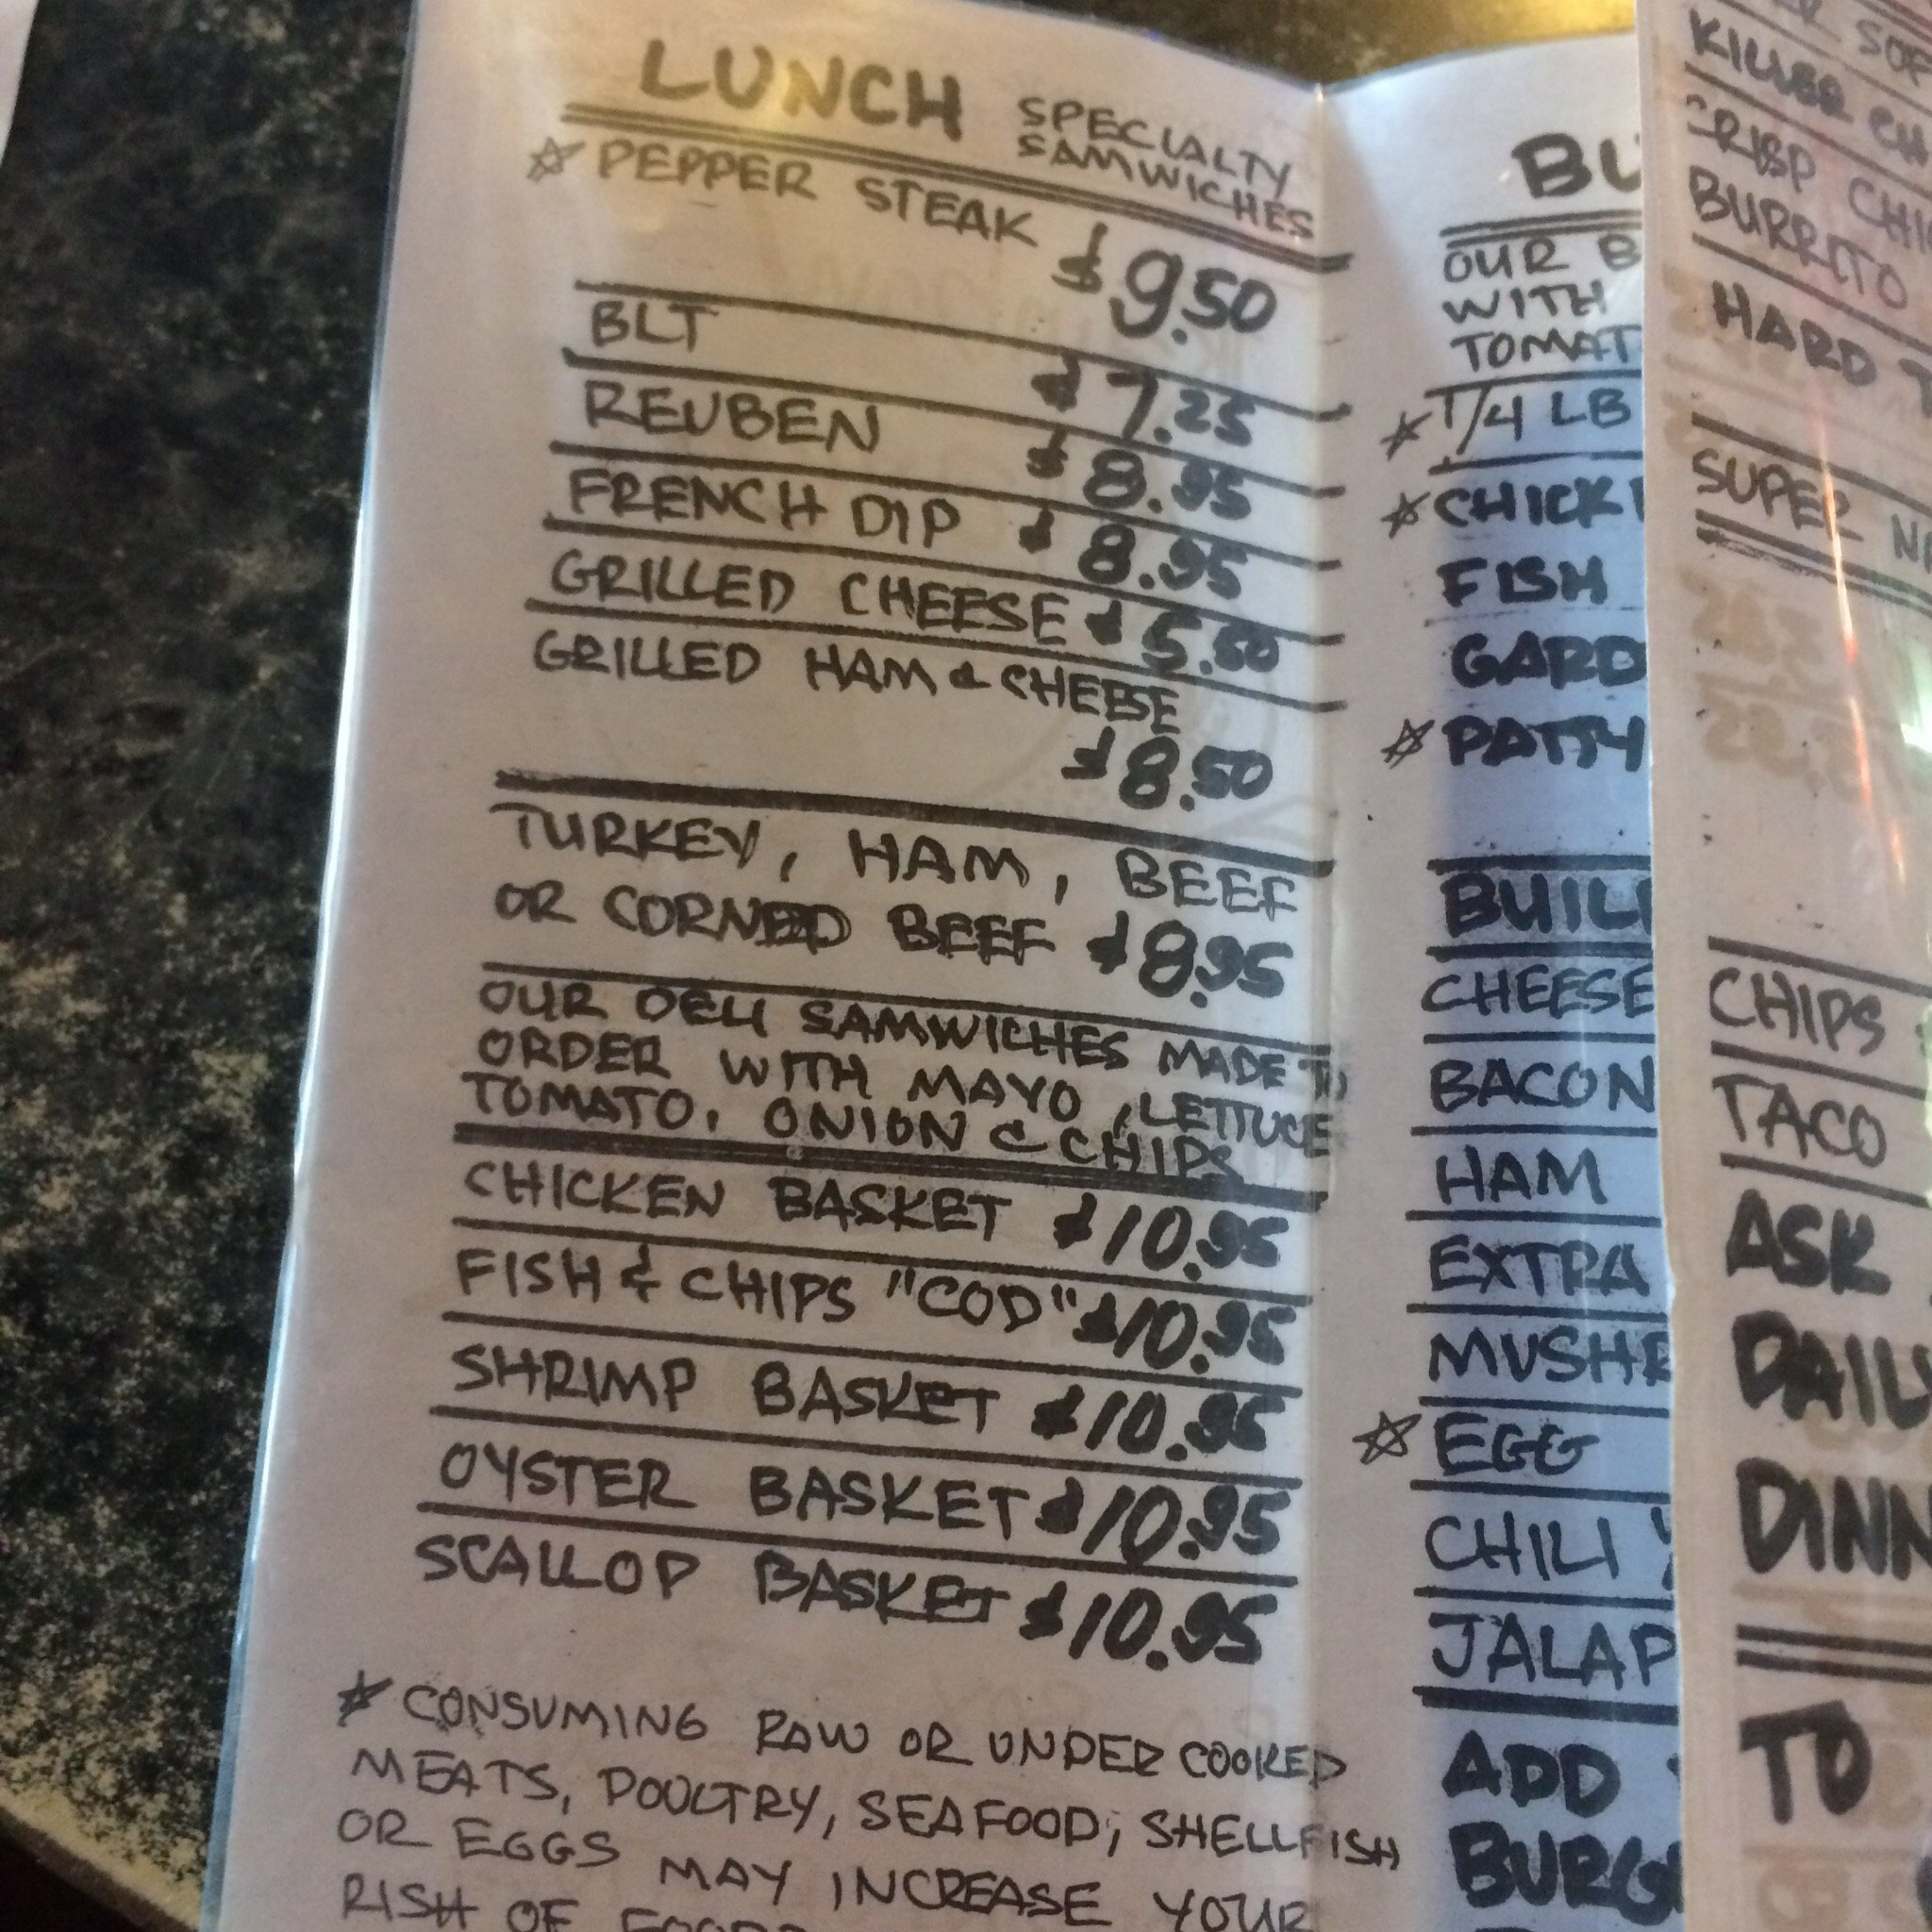 LUNCH SPECIALTY
SAMWICHES
☆ PEPPER STEAK
$9.50
BLT $7.25
REUBEN $8.95
FRENCH DIP $8.95
GRILLED CHEESE $5.50
GRILLED HAM & CHEESE
$8.50
TURKEY, HAM, BEEF
OR CORNED BEEF $8.95
OUR DELI SAMWICHES MADE TO
ORDER WITH MAYO, LETTUCE
TOMATO, ONION & CHIPS
CHICKEN BASKET $10.95
FISH & CHIPS "COD" $10.95
SHRIMP BASKET $10.95
OYSTER BASKET $10.95
SCALLOP BASKET $10.95
☆ CONSUMING RAW OR UNDER COOKED
MEATS, POULTRY, SEAFOOD, SHELLFISH
OR EGGS MAY INCREASE YOUR
RISH OF
BU
OUR B
WITH
TOMAT
☆ 1/4 LB
☆ CHICK
FISH
GARD
☆ PATTY
BUIL
CHEESE
BACON
HAM
EXTRA
MUSHR
☆ EGG
CHILI
JALAP
ADD
BURG
KILLER CH
CRISP CHI
BURRITO
HARD T
SUPER NA
CHIPS
TACO
ASK
DAILY
DINN
TO